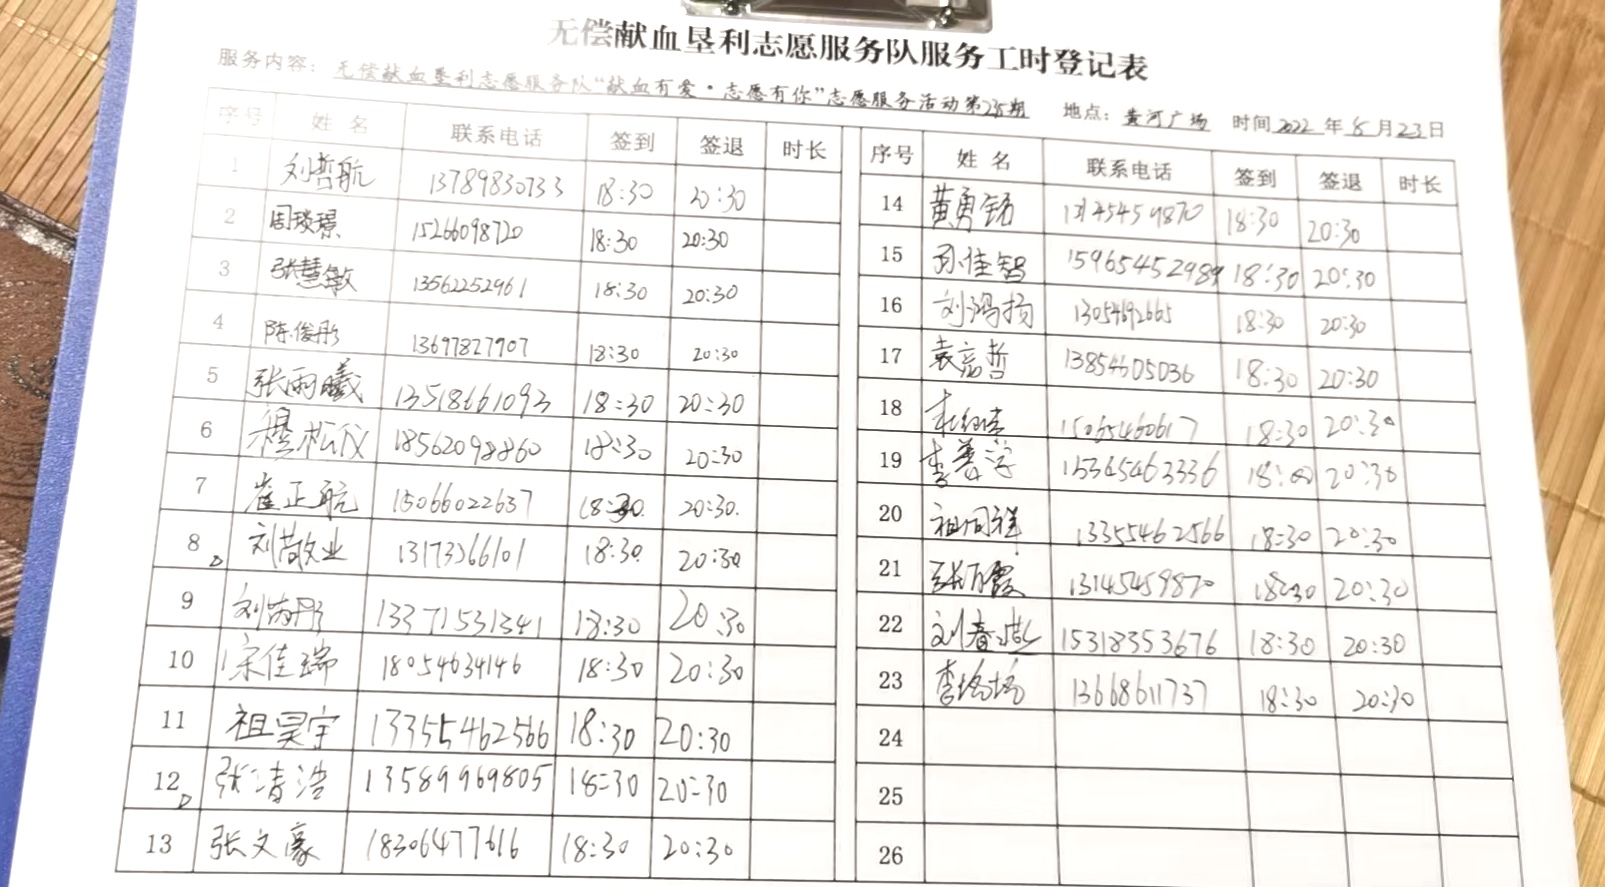 无偿献血垦利志愿服务队服务工时登记表
服务内容：无偿献血垦利志愿服务队“献血有爱·志愿有你”志愿服务活动第235期 地点：黄河广场 时间2022年8月23日
序号 姓名 联系电话 签到 签退 时长 序号 姓名 联系电话 签到 签退 时长
1 刘哲航 13789830733 18:30 20:30
2 周琰璟 15266098720 18:30 20:30
3 张慧敏 13562252961 18:30 20:30
4 陈俊彤 13697827907 18:30 20:30
5 张雨曦 13518661093 18:30 20:30
6 穆松仪 18562098860 18:30 20:30
7 崔正航 15066022637 18:30 20:30
8 刘敬业 13173366101 18:30 20:30
9 刘芮彤 13371531341 18:30 20:30
10 宋佳瑞 18054634146 18:30 20:30
11 祖昊宇 13355462566 18:30 20:30
12 张清浩 13589969805 18:30 20:30
13 张文豪 18306477616 18:30 20:30
14 黄勇铭 18:30 20:30
15 孙佳智 15965452989 18:30 20:30
16 刘鸿扬 13054692665 18:30 20:30
17 袁嘉哲 13854605036 18:30 20:30
18 15065460617 18:30 20:30
19 李善学 15345463336 20:30
20 祖同祥 13355462566 18:30 20:30
21 张万霞 13145459870 18:30 20:30
22 刘春燕 15318353676 18:30 20:30
23 李培培 13668611737 18:30 20:30
24
25
26